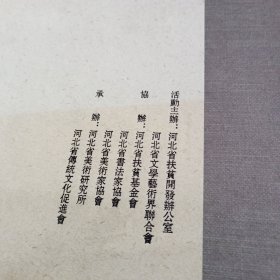 活動主辦：河北省扶貧開發辦公室
河北省文學藝術界聯合會
協辦：河北省扶貧基金會
河北省書法家協會
河北省美術家協會
承辦：河北省美術研究所
河北省傳統文化促進會